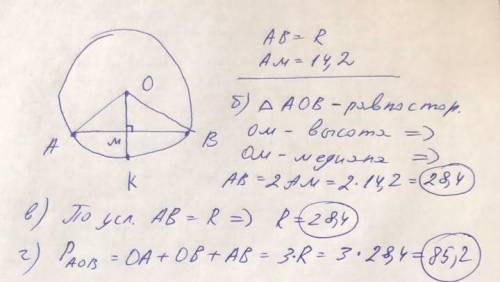 AB = R
AM = 14,2
O
A
M
B
K
б) △ AOB - равностор.
OM - высота =>
OM - медиана =>
AB = 2AM = 2·14,2 = 28,4
в) По усл. AB = R => R = 28,4
г) P AOB = OA + OB + AB = 3·R = 3·28,4 = 85,2